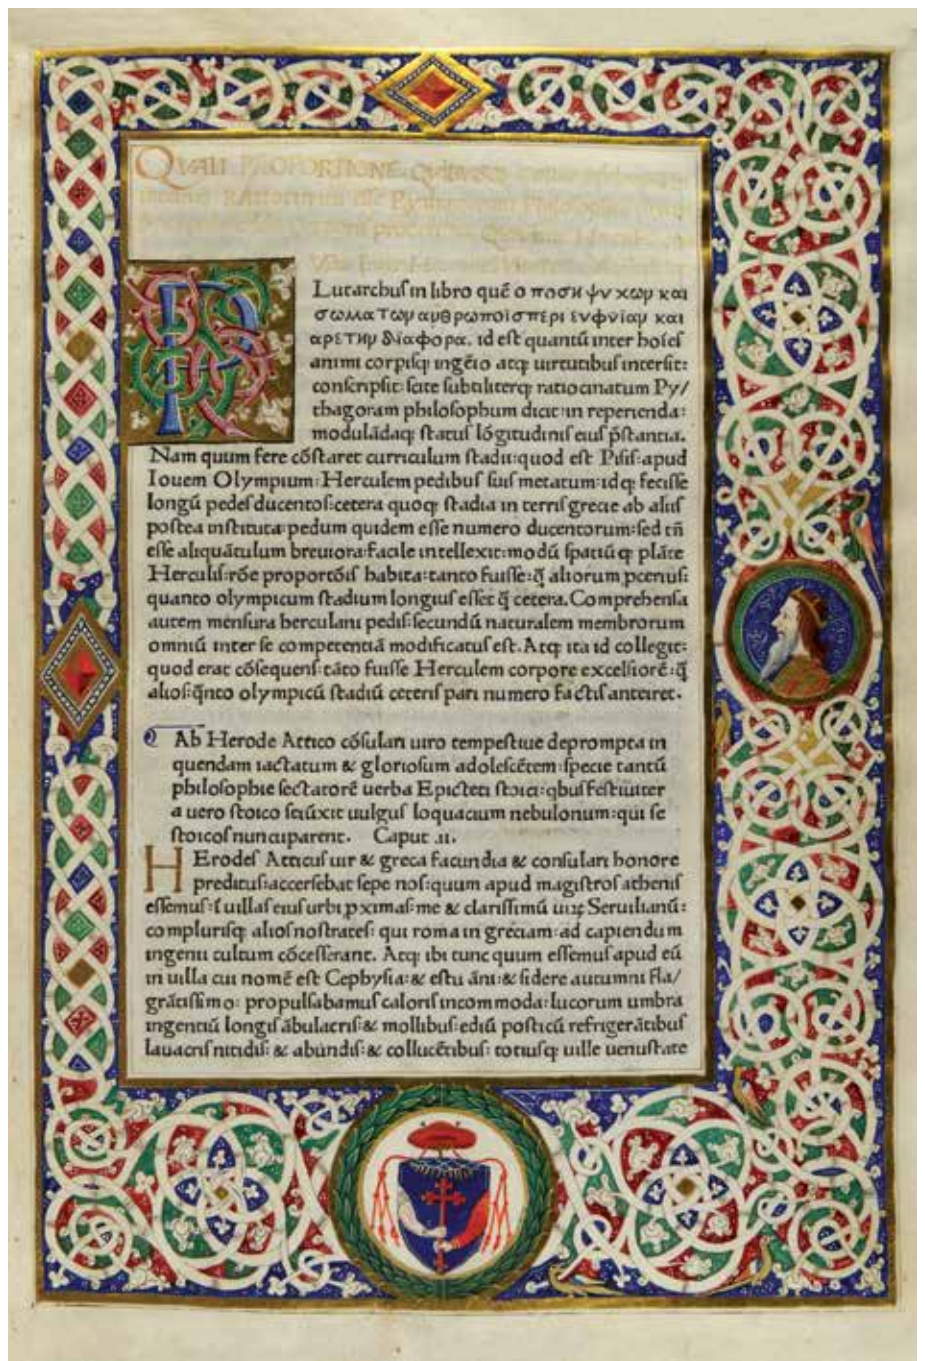 QUALI PROPORTIONE
P
Lutarchuſ in libro quē ο ποση ψυχων και
σωματων ανθρωποισ περι ευφυιαν και
αρετην διαφορα. id eſt quantū inter hoīeſ
animi corpiſq ingēio atq uirtutibuſ interſit:
conſcripſit: ſcite ſubtiliterq ratiocinatum Py/
thagoram philoſophum dicit: in reperienda:
modulādaq ſtatuſ lōgitudiniſ eiuſ p̄ſtantia.
Nam quum fere cōſtaret curriculum ſtadii: quod eſt Piſiſ: apud
Iouem Olympium: Herculem pedibuſ ſuiſ metatum: idq feciſſe
longū pedeſ ducentoſ: cetera quoq ſtadia in terriſ grecie ab aliiſ
poſtea inſtituta: pedum quidem eſſe numero ducentorum: ſed tn̄
eſſe aliquātulum breuiora: facile intellexit: modū ſpatiū q plāte
Herculiſ: rōe proportōiſ habita: tanto fuiſſe: q̄ aliorum pceriuſ:
quanto olympicum ſtadium longiuſ eſſet q̄ cetera. Comprehenſa
autem menſura herculani pediſ: ſecundū naturalem membrorum
omniū inter ſe competentiā modificatuſ eſt. Atq ita id collegit:
quod erat cōſequenſ: tāto fuiſſe Herculem corpore excelſiorē: q̄
alioſ: q̄nto olympicū ſtadiū ceteriſ pari numero factiſ anteiret.
Ab Herode Attico cōſulari uiro tempeſtiue deprompta in
quendam iactatum & glorioſum adoleſcētem: ſpecie tantū
philoſophie ſectatorē uerba Epicteti ſtoici: qbuſ feſtiuiter
a uero ſtoico ſeiūxit uulguſ loquacium nebulonum: qui ſe
ſtoicoſ nuncuparent. Caput .ii.
HErodeſ Atticuſ uir & greca facundia & conſulari honore
preditus: accerſebat ſepe noſ: quum apud magiſtroſ atheniſ
eſſemuſ: ī uillaſ eiuſ urbi pximaſ: me & clariſſimū uiꝝ Seruilianū:
compluriſq alioſ noſtrateſ: qui roma in greciam: ad capiendum
ingenii cultum cōceſſerant. Atq ibi tunc quum eſſemuſ apud eū
in uilla cui nomē eſt Cephyſia: & eſtu āni: & ſidere autumni fla/
grātiſſimo: propulſabamuſ caloriſ incommoda: lucorum umbra
ingentiū longiſ ābulacriſ: & mollibuſ: ediū poſticū refrigerātibuſ
lauacriſ nitidiſ: & abundiſ: & collucētibuſ: totiuſq uille uenuſtate